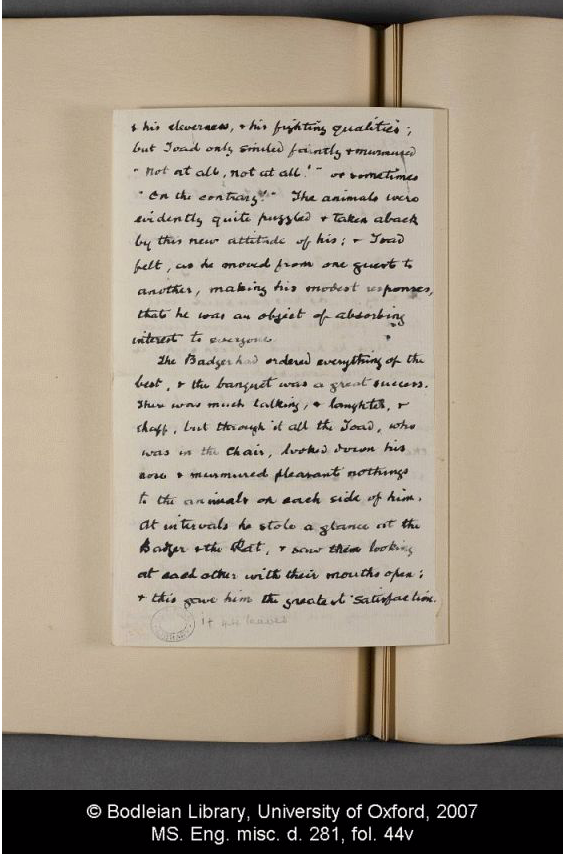 & his cleverness, & his fighting qualities;
but Toad only smiled faintly & murmured
"Not at all, not at all!" or sometimes
"On the contrary!" The animals were
evidently quite puzzled & taken aback
by this new attitude of his; & Toad
felt, as he moved from one guest to
another, making his modest responses,
that he was an object of absorbing
interest to everyone.
The Badger had ordered everything of the
best, & the banquet was a great success.
There was much talking, & laughter, &
chaff, but through it all the Toad, who
was in the Chair, looked down his
nose & murmured pleasant nothings
to the animals on each side of him.
At intervals he stole a glance at the
Badger & the Rat, & saw them looking
at each other with their mouths open;
& this gave him the greatest satisfaction.
leaves
© Bodleian Library, University of Oxford, 2007
MS. Eng. misc. d. 281, fol. 44v